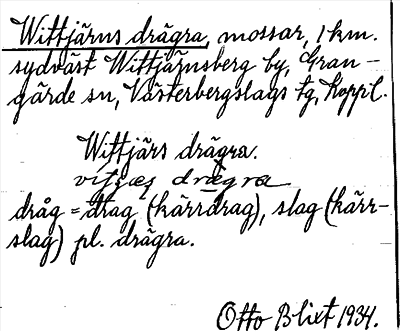 Wittjärns drägra, mossar, 1 km.
sydväst Wittjärnsberg by, Gran-
gärde sn, Västerbergslags tg, Koppl.
Wittjärs drägra.
drägra
dråg = drag (kärrdrag), slag (kärr-
slag) pl. drägra.
Otto Blixt 1934.